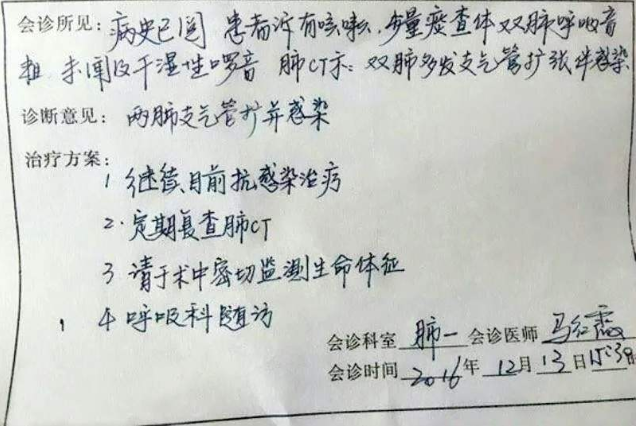 会诊所见：病史已阅 患者诉有咳嗽，少量痰查体双肺呼吸音
粗 未闻及干湿性啰音 肺CT示：双肺多发支气管扩张伴感染
诊断意见：两肺支气管扩并感染
治疗方案：
1 继续目前抗感染治疗
2. 定期复查肺CT
3 请于术中密切监测生命体征
4 呼吸科随访
会诊科室 肺一 会诊医师 马红霞
会诊时间 2016年 12月 13日 15:30